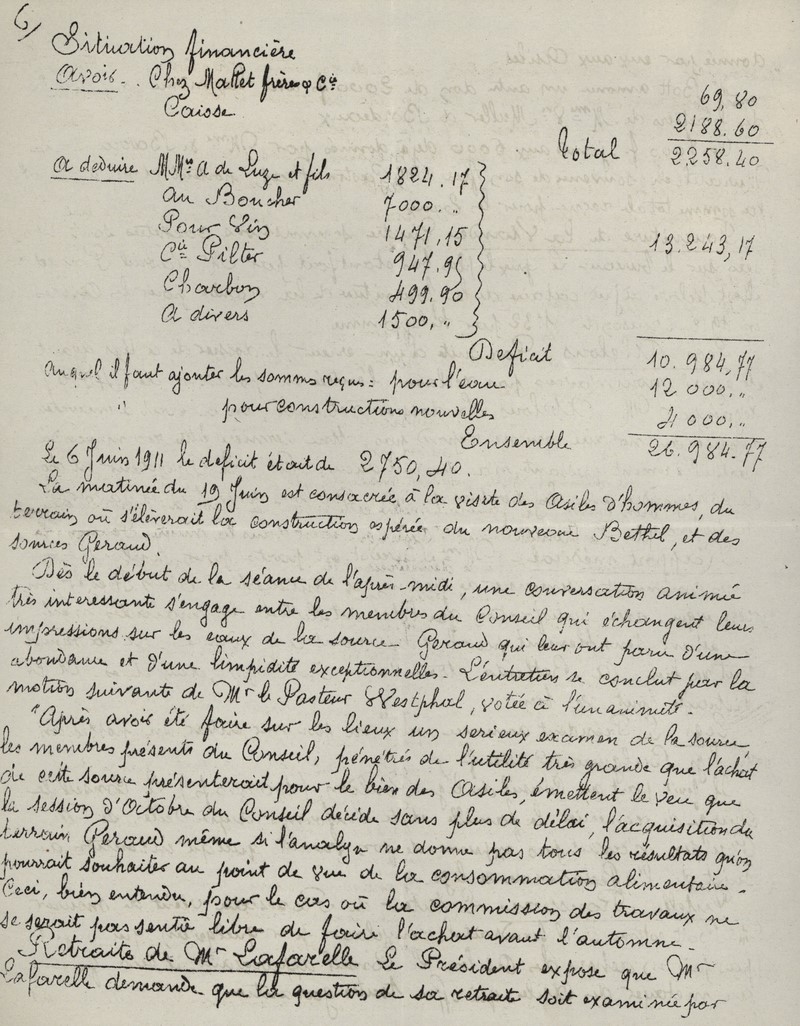 6/
Situation financière
Avoir. Chez Mallet frères & Cie 69,80
Caisse 2188.60
Total 2,258.40
A deduire MMrs A de Luze et fils 1824.17
au Boucher 7000. "
Pour Vin 1471,15 13.243,17
Cie Pilter 947.95
Charbon 499.90
A divers 1500, "
Deficit 10.984,77
Auquel il faut ajouter les sommes reçus : pour l'eau 12 000, "
" pour constructions nouvelles 4 000, "
Ensemble 26.984.77
Le 6 Juin 1911 le deficit était de 2750,40.
La matinée du 19 Juin est consacrée à la visite des Asiles d'hommes, du
terrain où s'élèverait la construction espérée du nouveau Bethel, et des
sources Geraud.
Dès le début de la séance de l'après-midi, une conversation animée
très interessante s'engage entre les membres du Conseil qui échangent leurs
impressions sur les eaux de la source Geraud qui leur ont paru d'une
abondance et d'une limpidité exceptionnelles. L'entretien se conclut par la
motion suivante de Mr le Pasteur Westphal, votée à l'unanimité.
"Après avoir été faire sur les lieux un serieux examen de la source,
les membres présents du Conseil, pénétrés de l'utilité très grande que l'achat
de cette source présenterait pour le bien des Asiles, émettent le veu que
la session d'Octobre du Conseil décide sans plus de délai, l'acquisition du
terrain Geraud même si l'analyse ne donne pas tous les résultats qu'on
pourrait souhaiter au point de vue de la consommation alimentaire.
Ceci, bien entendu, pour le cas où la commission des travaux ne
se serait pas sentie libre de faire l'achat avant l'automne.
Retraite de Mr Lafarelle Le Président expose que Mr
Lafarelle demande que la question de sa retraite soit examinée par